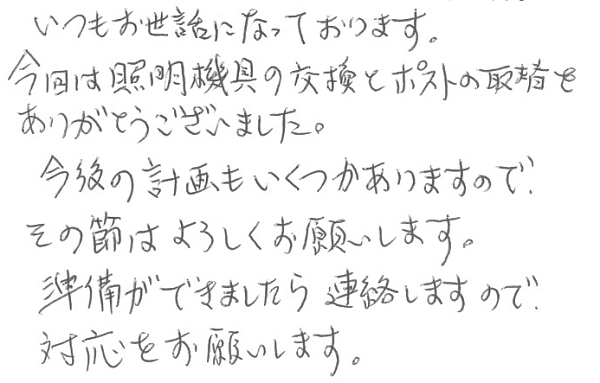 いつもお世話になっております。
今回は照明機具の交換とポストの取替を
ありがとうございました。
今後の計画もいくつかありますので、
その節はよろしくお願いします。
準備ができましたら連絡しますので、
対応をお願いします。